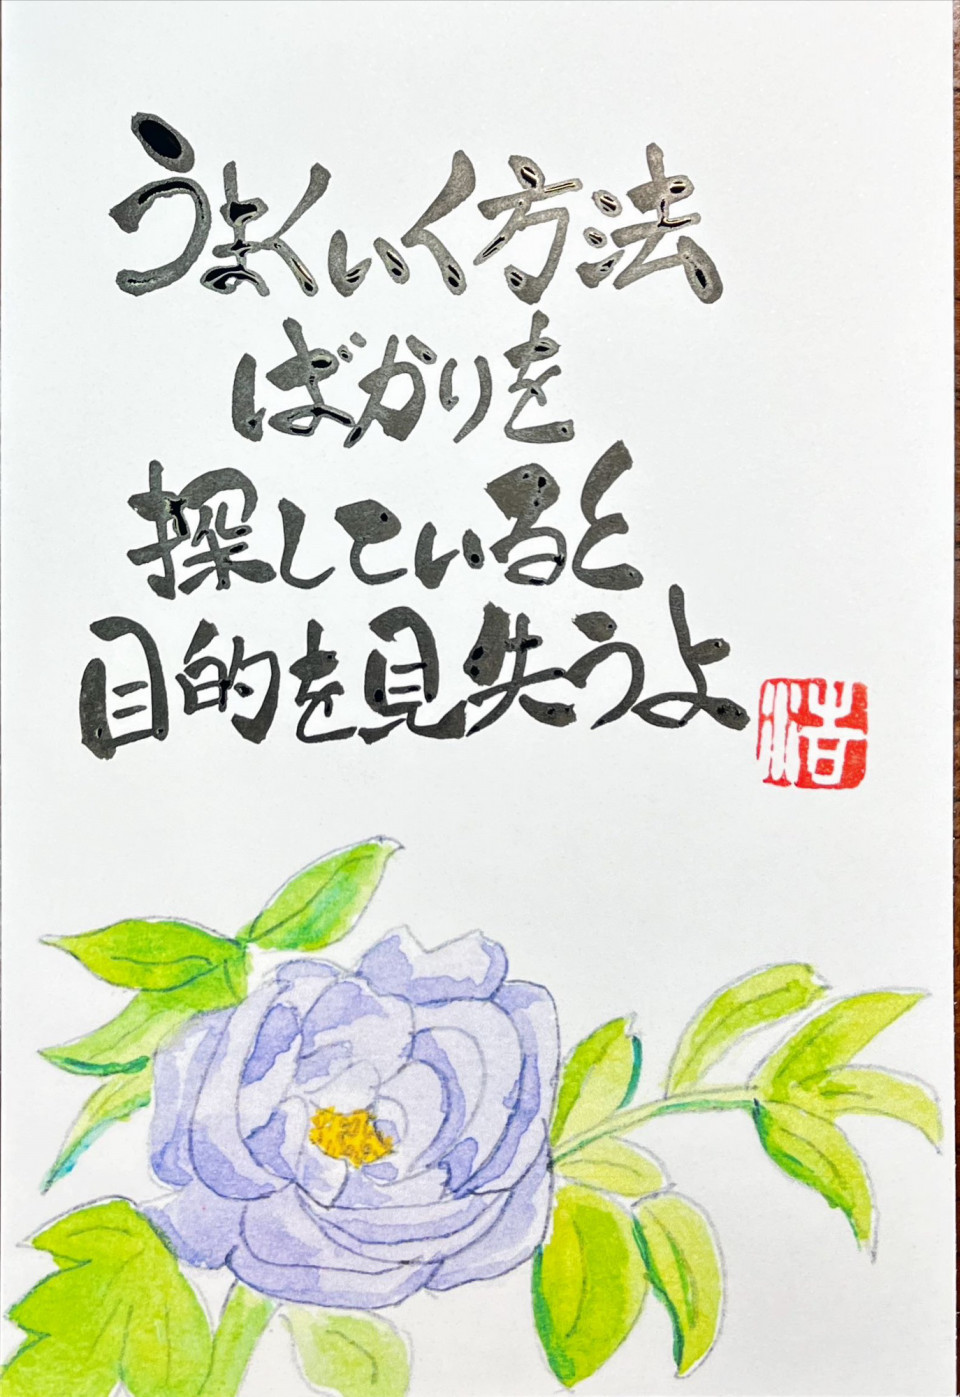 うまくいく方法
ばかりを
探していると
目的を見失うよ